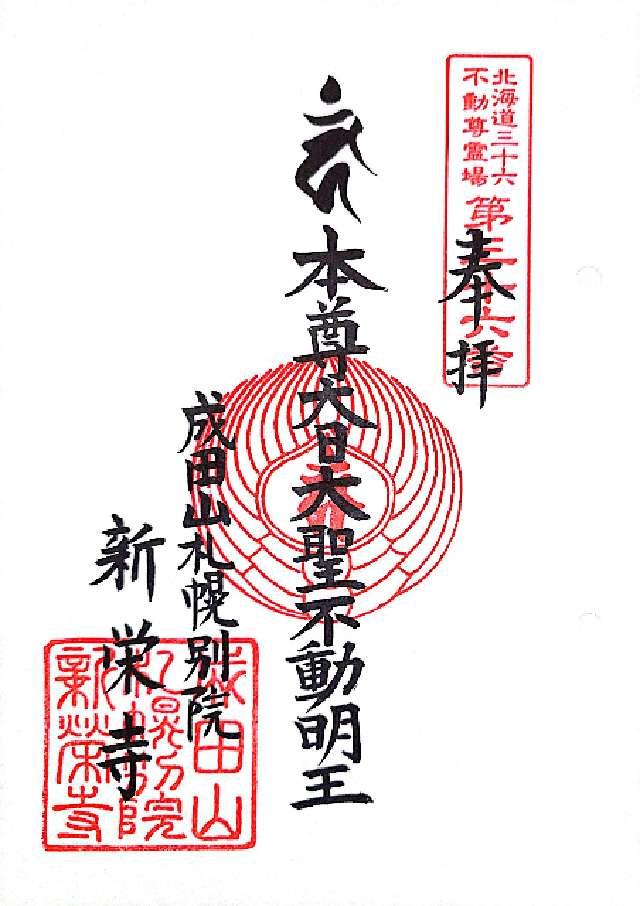 北海道三十六
不動尊霊場
第三十六番
奉拝
本尊大日大聖不動明王
成田山札幌別院
新栄寺
成田山
札幌別院
新榮寺